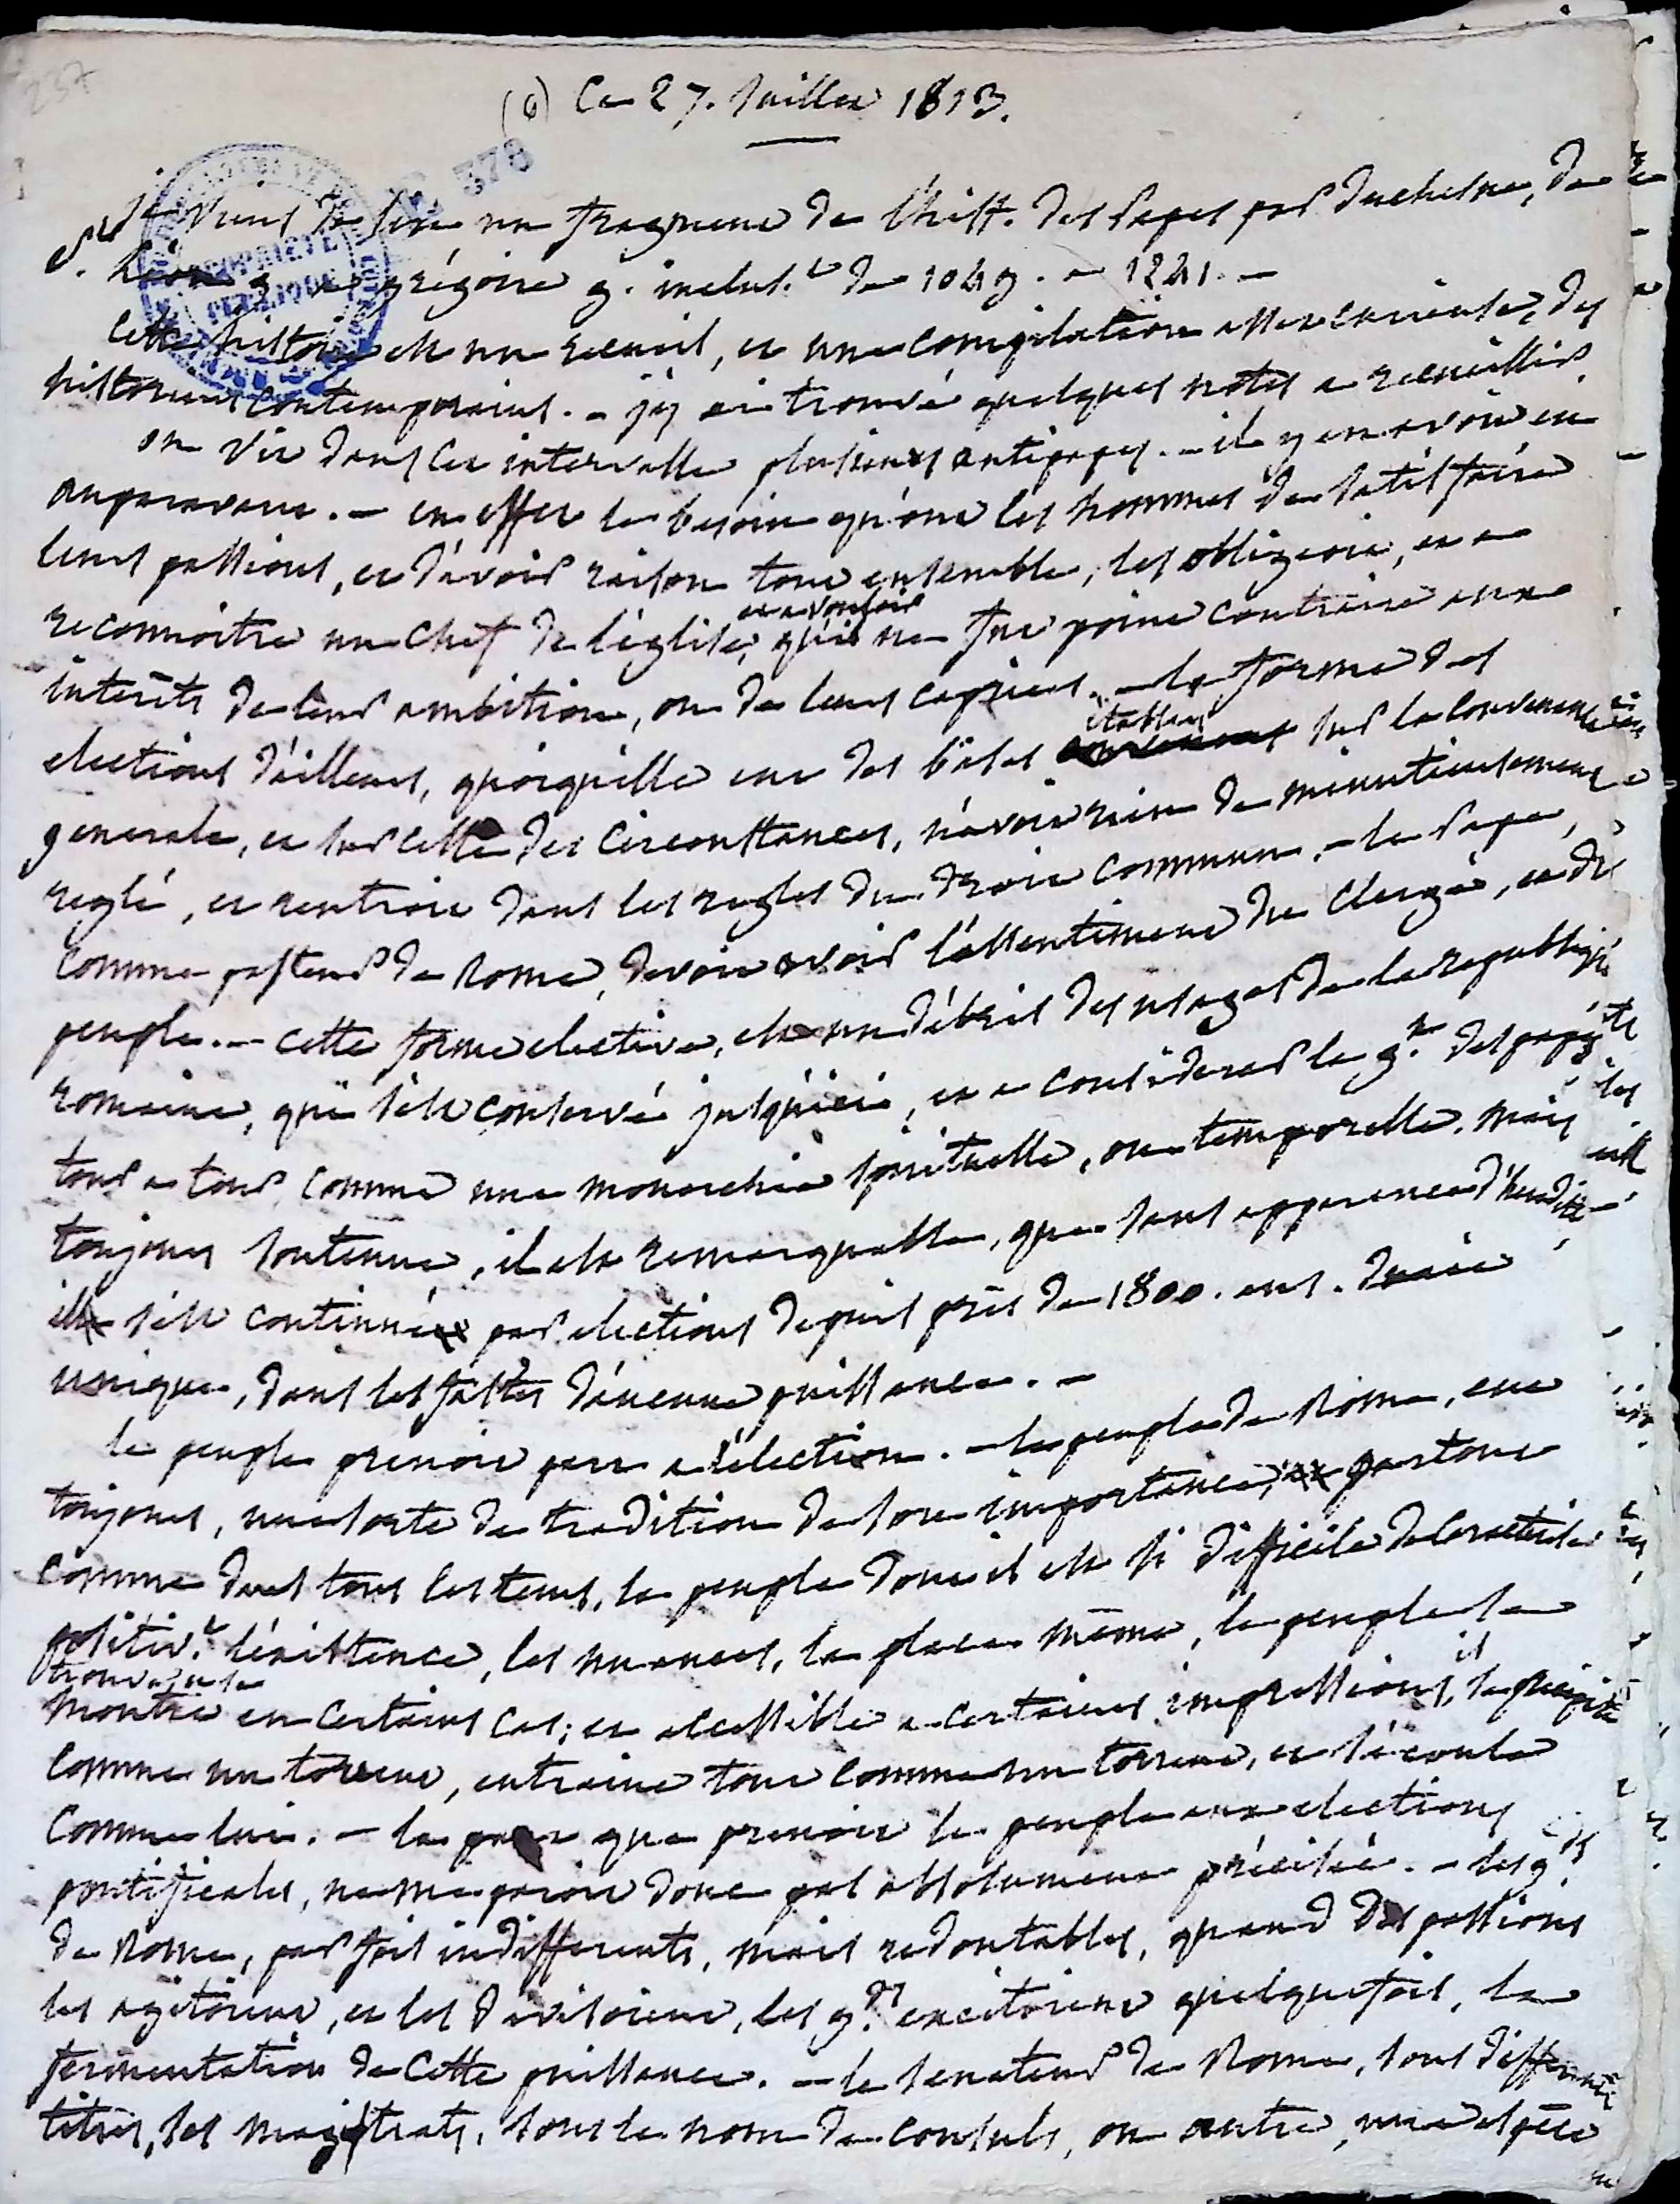 237
(6) Ce 27. Juillet 1813.
378
PROPRIÉTÉ PUBLIQUE
Je viens de lire un fragment de l'hist. des Papes par Duchesne, de
St. Léon 9 à grégoire 9. inclus.t de 1049. a 1241. –
cette histoire est un recueil, et une compilation assez curieuse, des
historiens contemporains. – j'y ai trouvé quelques notes a recueillir.
on vit dans cet intervalle plusieurs antipapes. – il y en avoit eu
auparavant. – en effet le besoin qu'ont les hommes de satisfaire
leurs passions, et d'avoir raison tout ensemble, les obligeoit, et a
reconnoitre un chef de l'église, et a vouloir qu'il ne fut point contraire aux
intérêts de leur ambition, ou de leurs caprices. – la forme des
elections d'ailleurs, quoiqu'elle eut des bases établies sur la convenance
generale, et sur celle des circonstances, n'avoit rien de minutieusement
reglé, et rentroit dans les regles du droit commun. – le Pape,
comme pasteur de Rome, devoit avoir l'assentiment du clergé, et du
peuple. – cette forme elective, est un débris des usages de la republique
romaine, qui s'est conservé jusqu'ici, et a considerer le g.t des papes
tour a tour, comme une monarchie spirituelle, ou temporelle, mais
toujours soutenue, il est remarquable, que sans apparence d'heredité
elle s'est continuée par elections depuis près de 1800. ans. durée
unique, dans les fastes d'aucune puissance. –
le peuple prenoit part a l'élection. – le peuple de Rome, eut
toujours, une sorte de tradition de son importance, partout
comme dans tous les tems, le peuple dont il est si difficile de caracteriser
positiv.t l'existence, les nuances, la place même, le peuple se
trouve, et se montre en certains cas; et accessible a certaines impressions, il se précipite
comme un torrent, entraine tout comme un torrent, et s'écoule
comme lui. – la part que prenoit le peuple aux elections
pontificales, ne me paroit donc pas absolument précisée. – les g.ds
de Rome, parfois indifferents, mais redoutables, quand des passions
les agitoient, et les divisoient, les g.ds excitoient quelquefois, la
fermentation de cette puissance. – le senateur de Rome, sous differents
titres, les magistrats, sous le nom de consuls, ou autre, une espèce